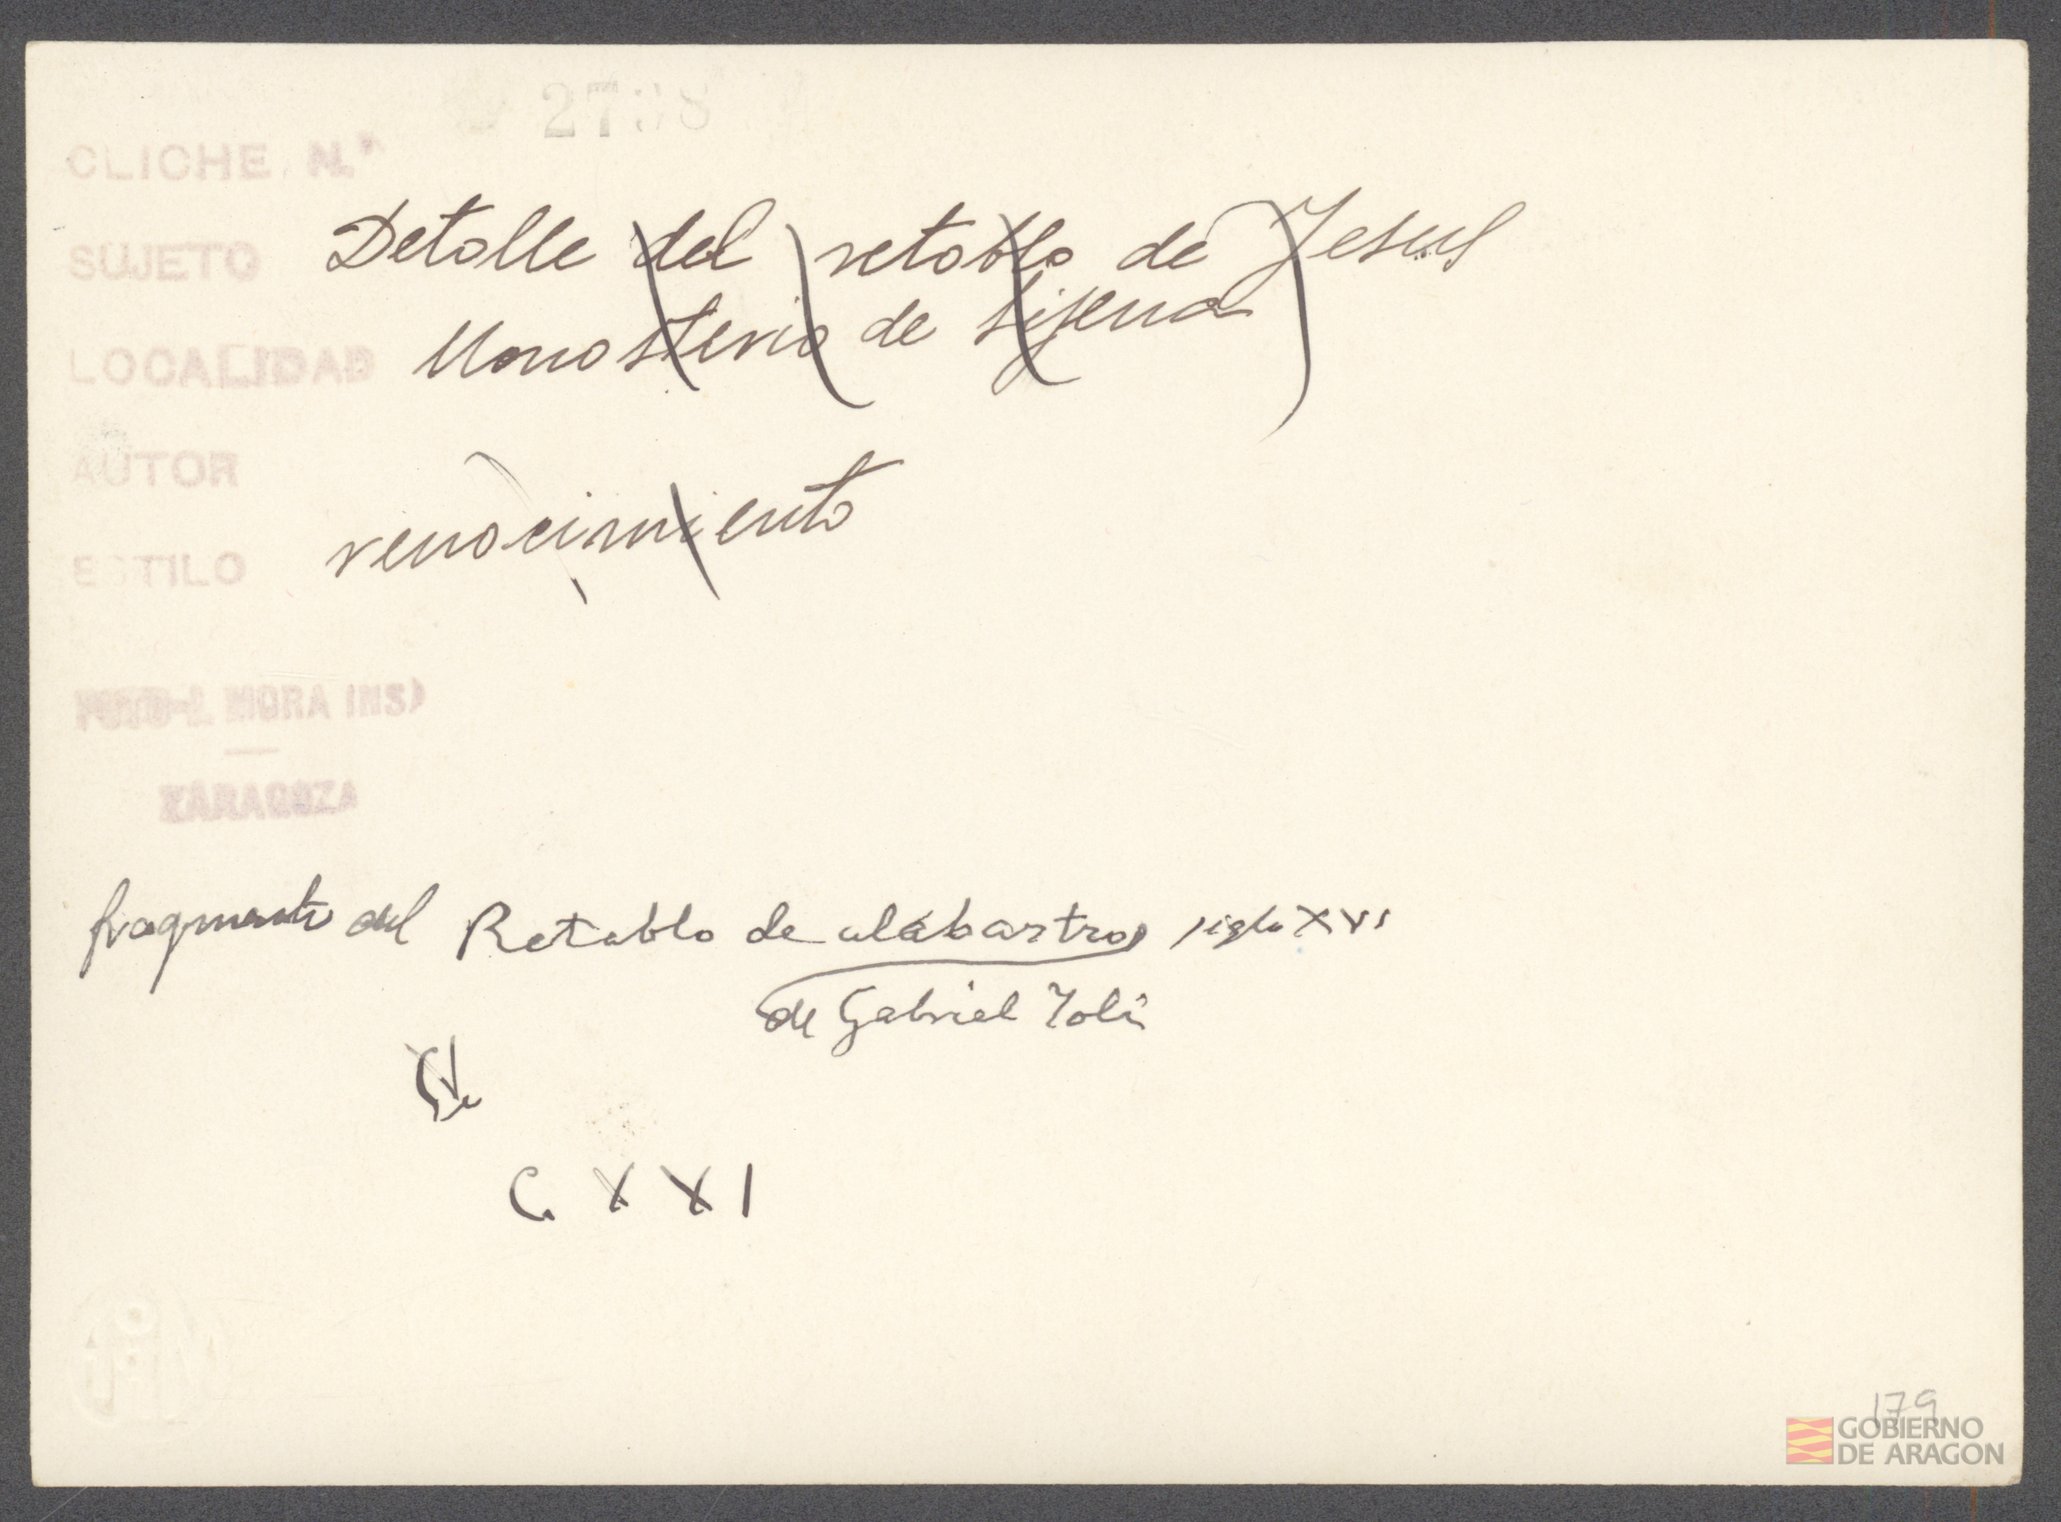 CLICHE N.º
SUJETO Detalle del retablo de Jesus
LOCALIDAD Monasterio de Sijena
AUTOR
ESTILO renacimiento
FOTO-I. MORA INS)
ZARAGOZA
fragmento del Retablo de alabastro, siglo XVI
de Gabriel Yoli
C X X I
179
GOBIERNO
DE ARAGON